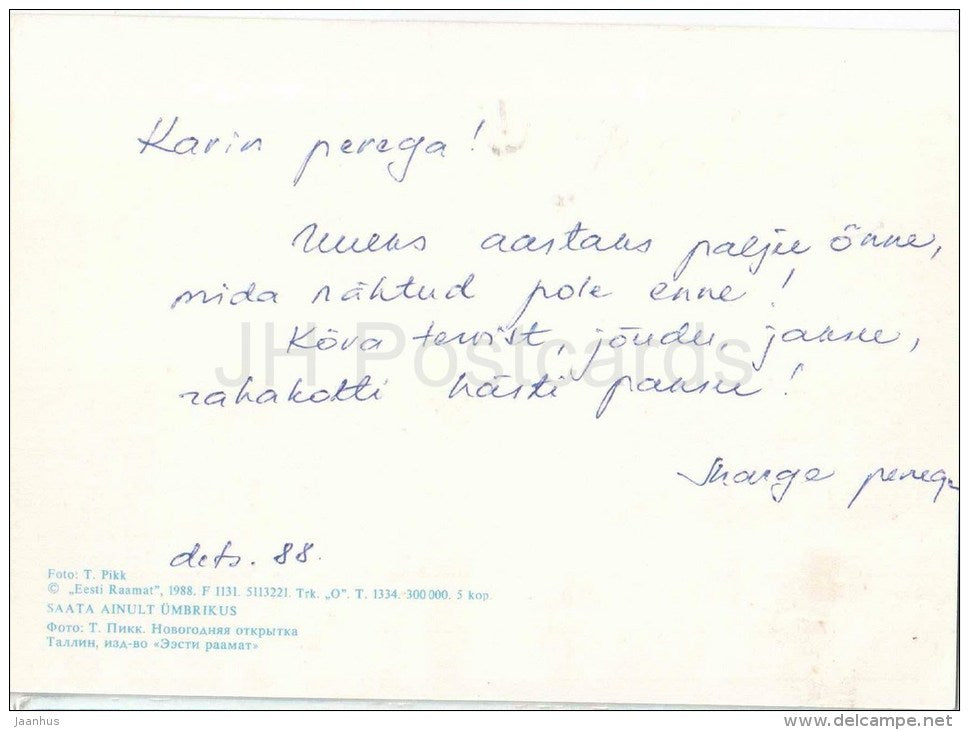 Karin perega!
Uueks aastaks palju õnne,
mida nähtud pole enne!
Kõva tervist, jõudu, jaksu,
rahakotti hästi paksu!
perega
dets. 88.
Foto: T. Pikk
© „Eesti Raamat”, 1988. F 1131. 5113221. Trk. „O”. T. 1334. 300 000. 5 kop.
SAATA AINULT ÜMBRIKUS
Фото: Т. Пикк. Новогодняя открытка
Таллин, изд-во «Ээсти раамат»
JH Postcards
Jaanhus
www.delcampe.net